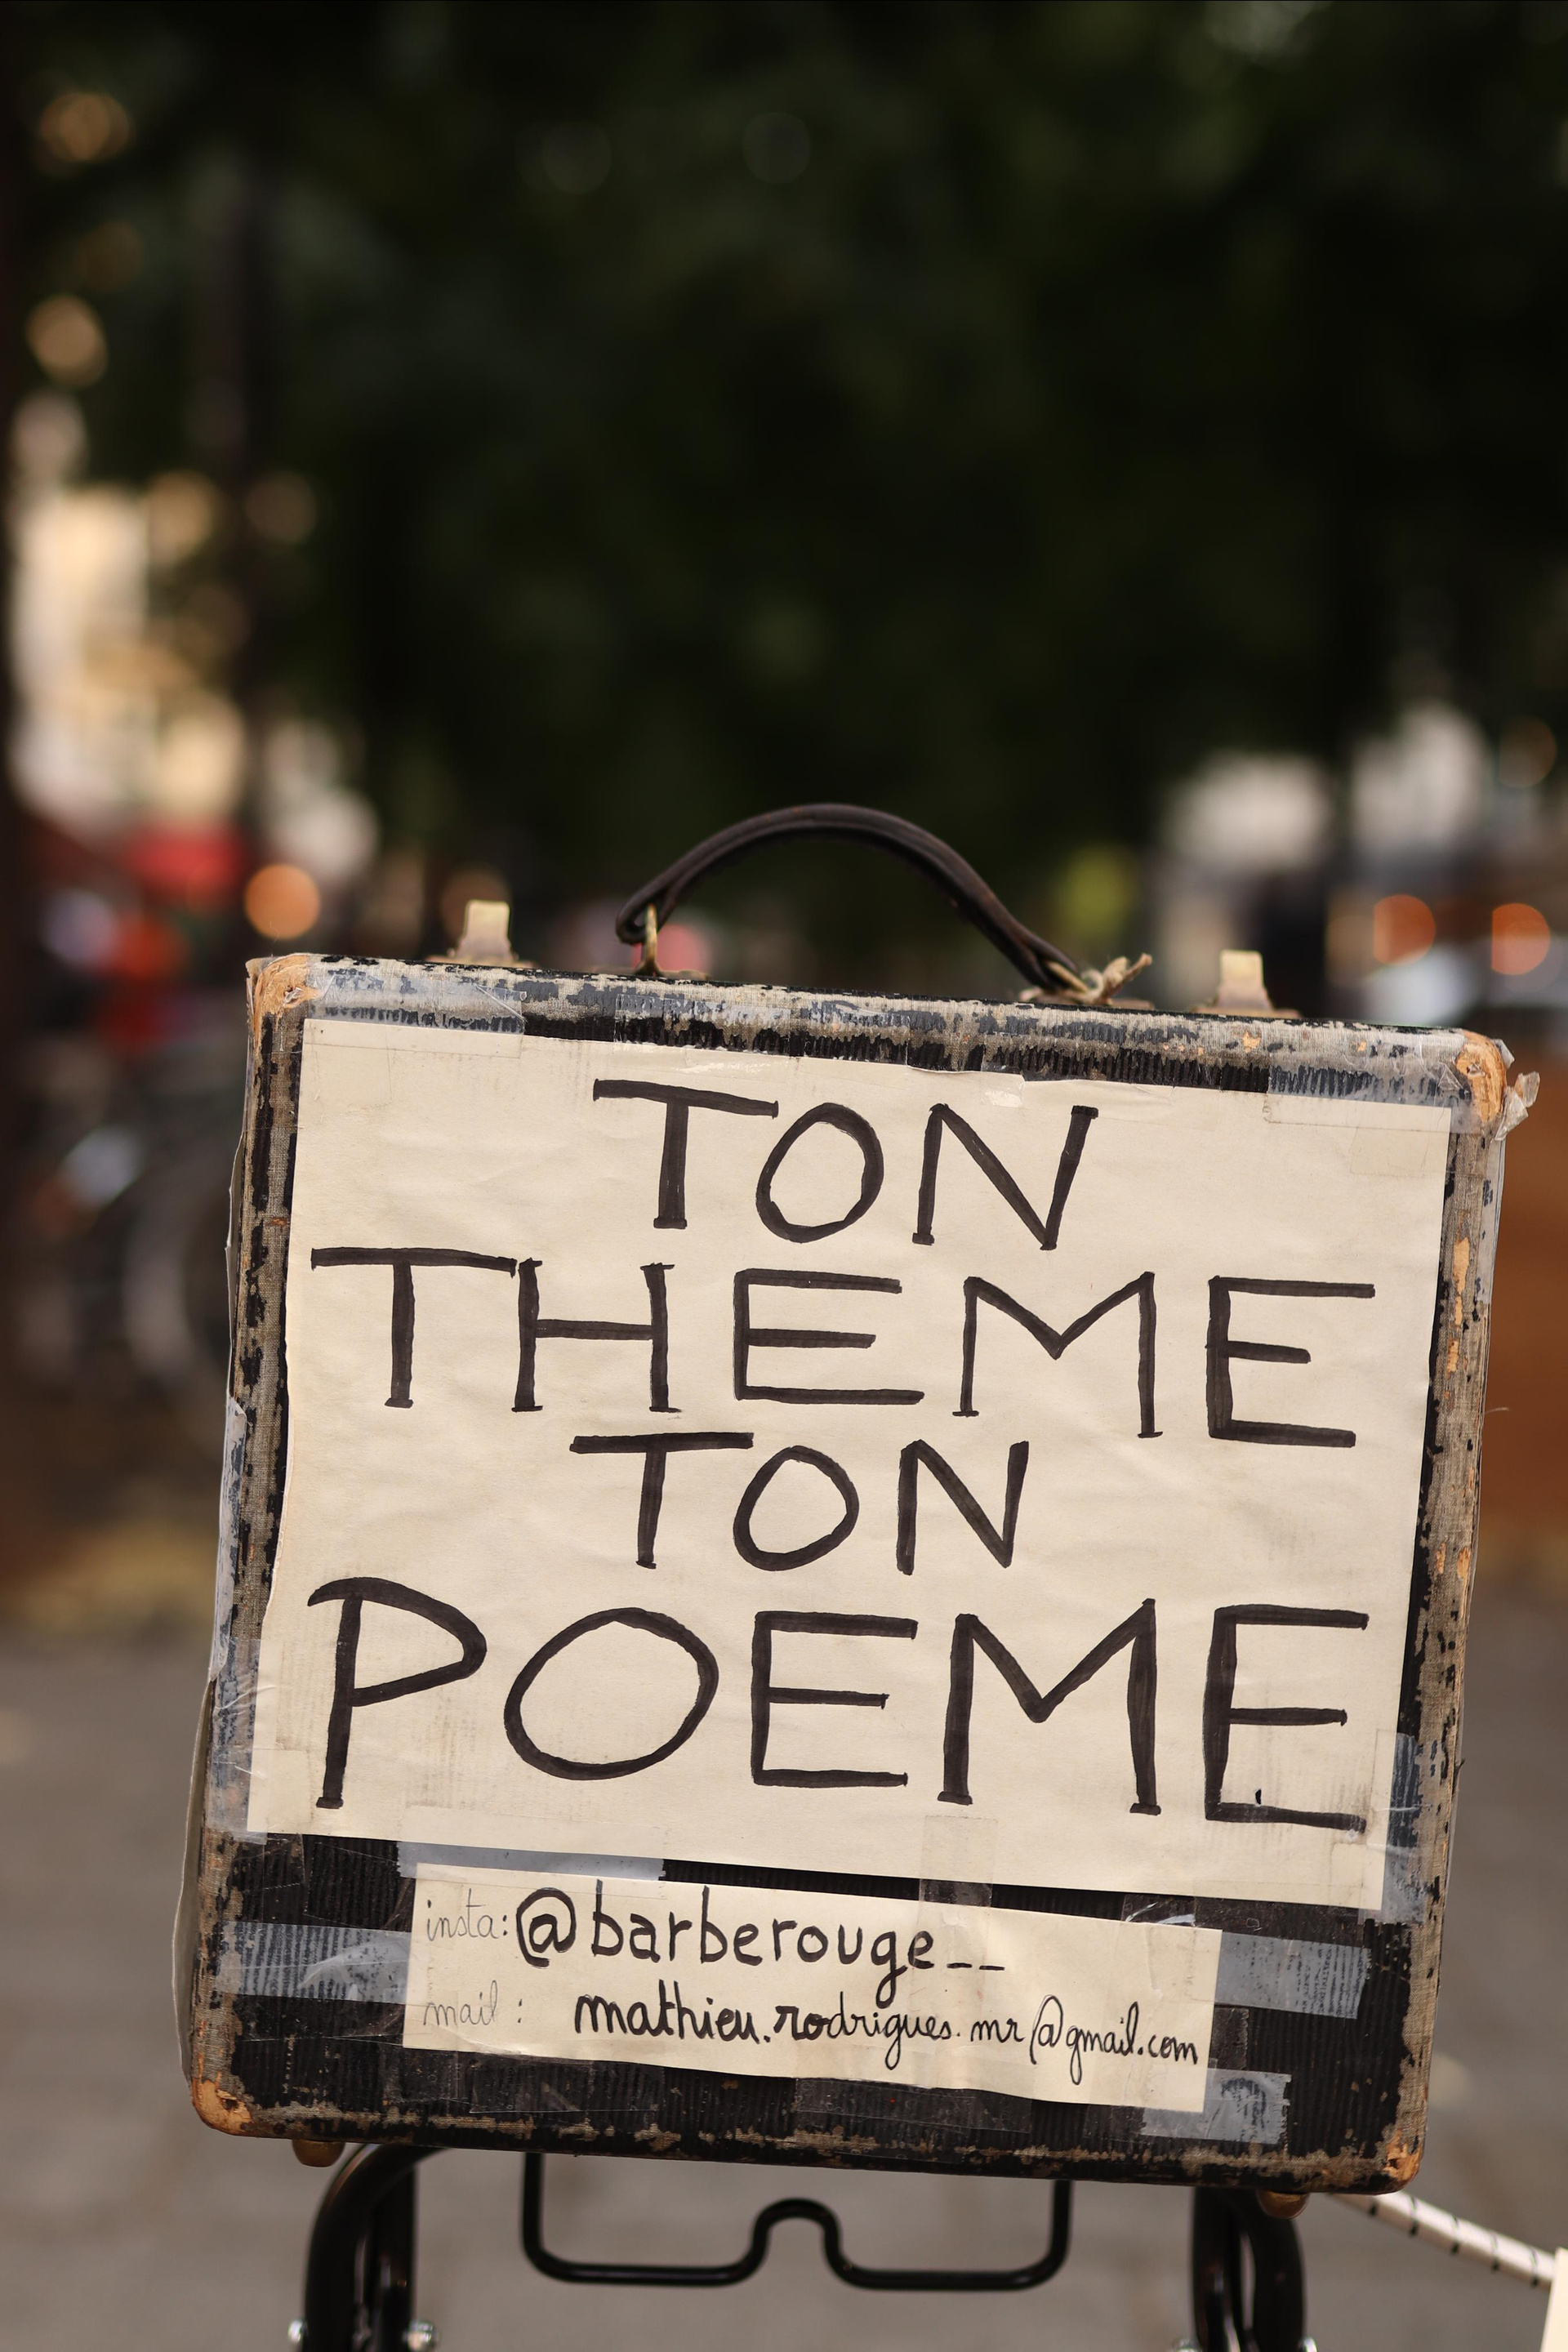 TON
THEME
TON
POEME
insta: @barberouge__
mail : mathieu.rodrigues.mr@gmail.com